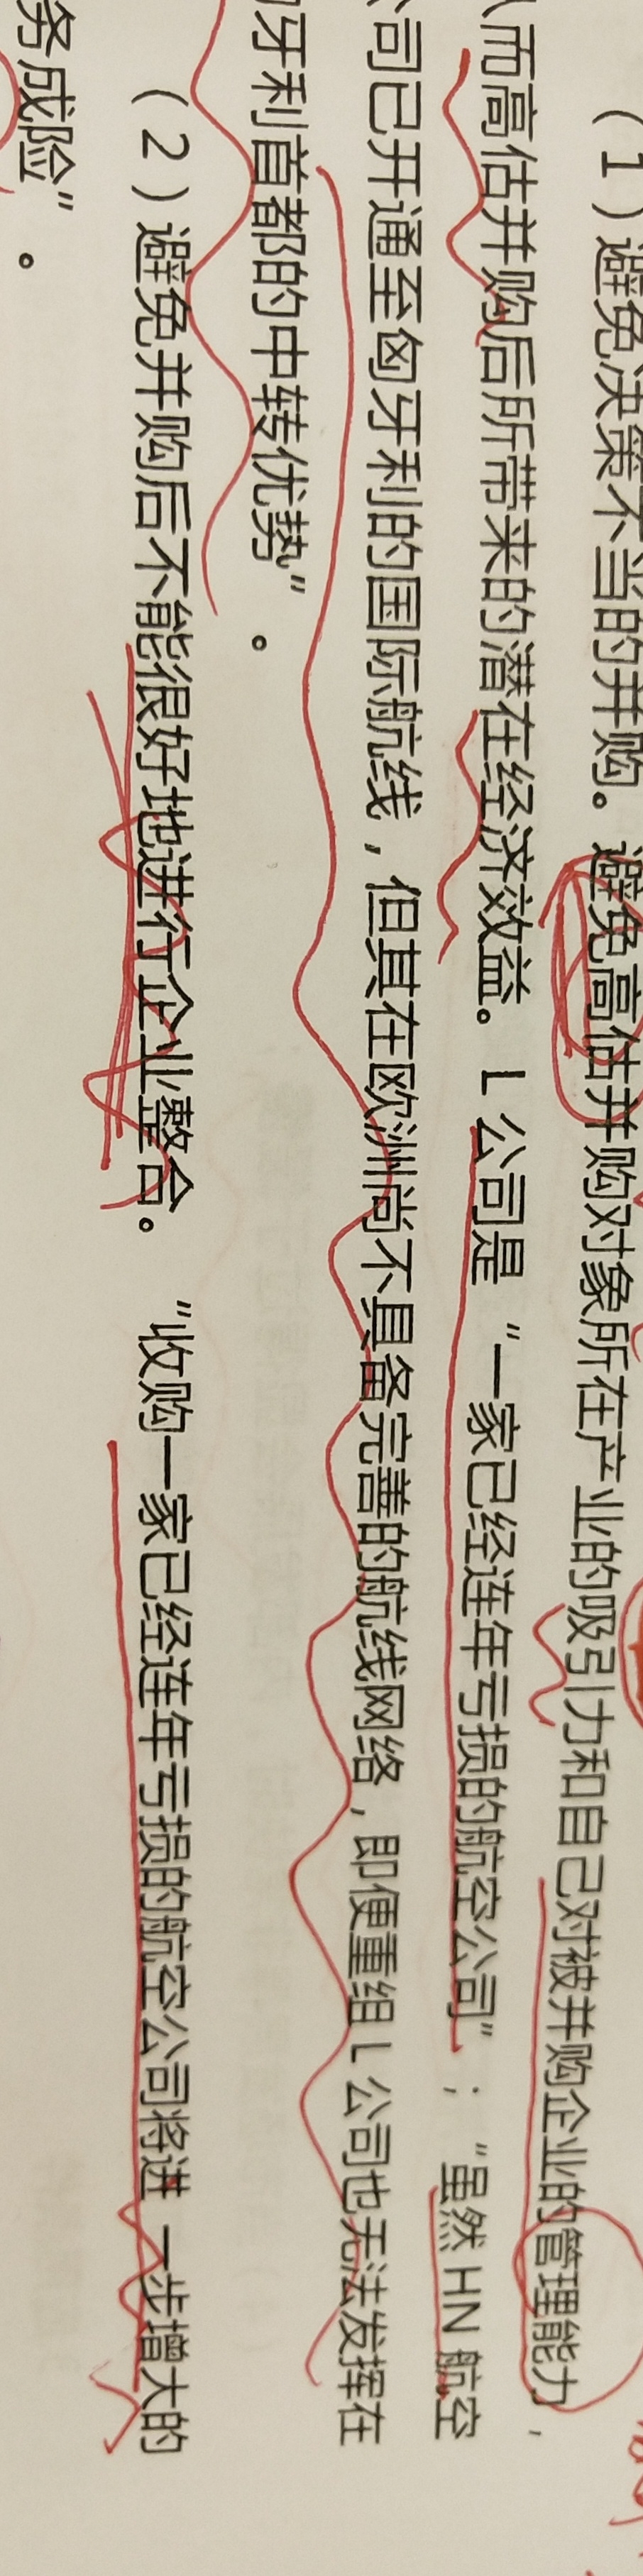 （1）避免决策不当的并购。避免高估并购对象所在产业的吸引力和自己对被并购企业的管理能力，
从而高估并购后所带来的潜在经济效益。L 公司是“一家已经连年亏损的航空公司”；“虽然 HN 航空
公司已开通至匈牙利的国际航线，但其在欧洲尚不具备完善的航线网络，即便重组 L 公司也无法发挥在
匈牙利首都的中转优势”。
（2）避免并购后不能很好地进行企业整合。“收购一家已经连年亏损的航空公司将进一步增大的
务成险”。